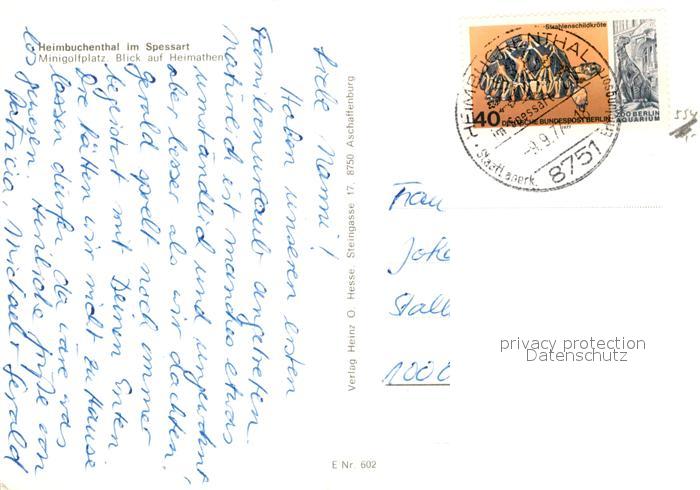 Heimbuchenthal im Spessart
Minigolfplatz. Blick auf Heimathen
Liebe Mami!
Haben unseren ersten
Familienurlaub angetreten.
Natürlich ist manches etwas
umständlich und ungewohnt,
aber besser als wir dachten.
Gerald spielt noch immer
begeistert mit Deinen Enten
Die hätten wir nicht zu Hause
lassen dürfen, da wäre was
los gewesen. Herzliche Grüße von
Patricia, Michael + Gerald
Verlag Heinz O. Hesse, Steingasse 17, 8750 Aschaffenburg
E Nr. 602
Strahlenschildkröte
40 DEUTSCHE BUNDESPOST BERLIN
ZOO BERLIN
AQUARIUM
HEIMBUCHENTHAL
im Spessart
-9.9.77
8751
Staatl. anerk.
Frau
Joh
Stall
1000
privacy protection
Datenschutz